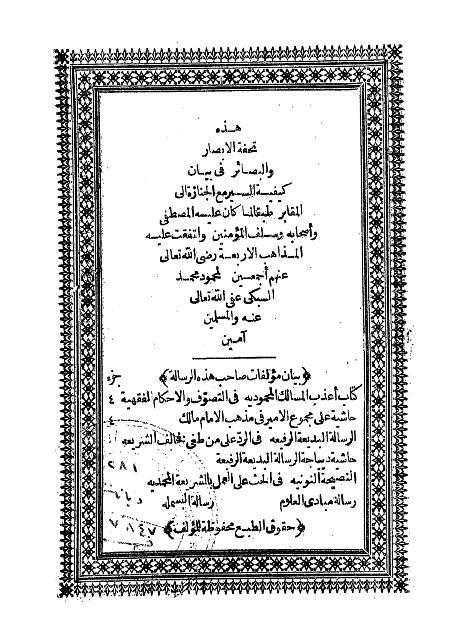 هذه
تحفة الابصار
والبصائر فى بيان
كيفية السير مع الجنازة الى
المقابر طبق ما كان عليه المصطفى
وأصحابه وسلف المؤمنين واتفقت عليه
المذاهب الاربعة رضى الله تعالى
عنهم أجمعين لمحمود محمد
السبكى عفى الله تعالى
عنه والمسلمين
آمين
﴿بيان مؤلفات صاحب هذه الرسالة﴾ جزء
كتاب أعذب المسالك المحموديه فى التصوف والاحكام الفقهية ٤
حاشية على مجموع الامير فى مذهب الامام مالك ٤
الرسالة البديعة الرفيعه فى الرد على من طغى فخالف الشريعه
حاشية ديباجة الرسالة البديعة الرفيعة
النصيحة النونيه فى الحث على العمل بالشريعة المحمديه
رسالة مبادى العلام رسالة البسمله
﴿حقوق الطبع محفوظة للمؤلف﴾
٢٨١
٧٨٤٧